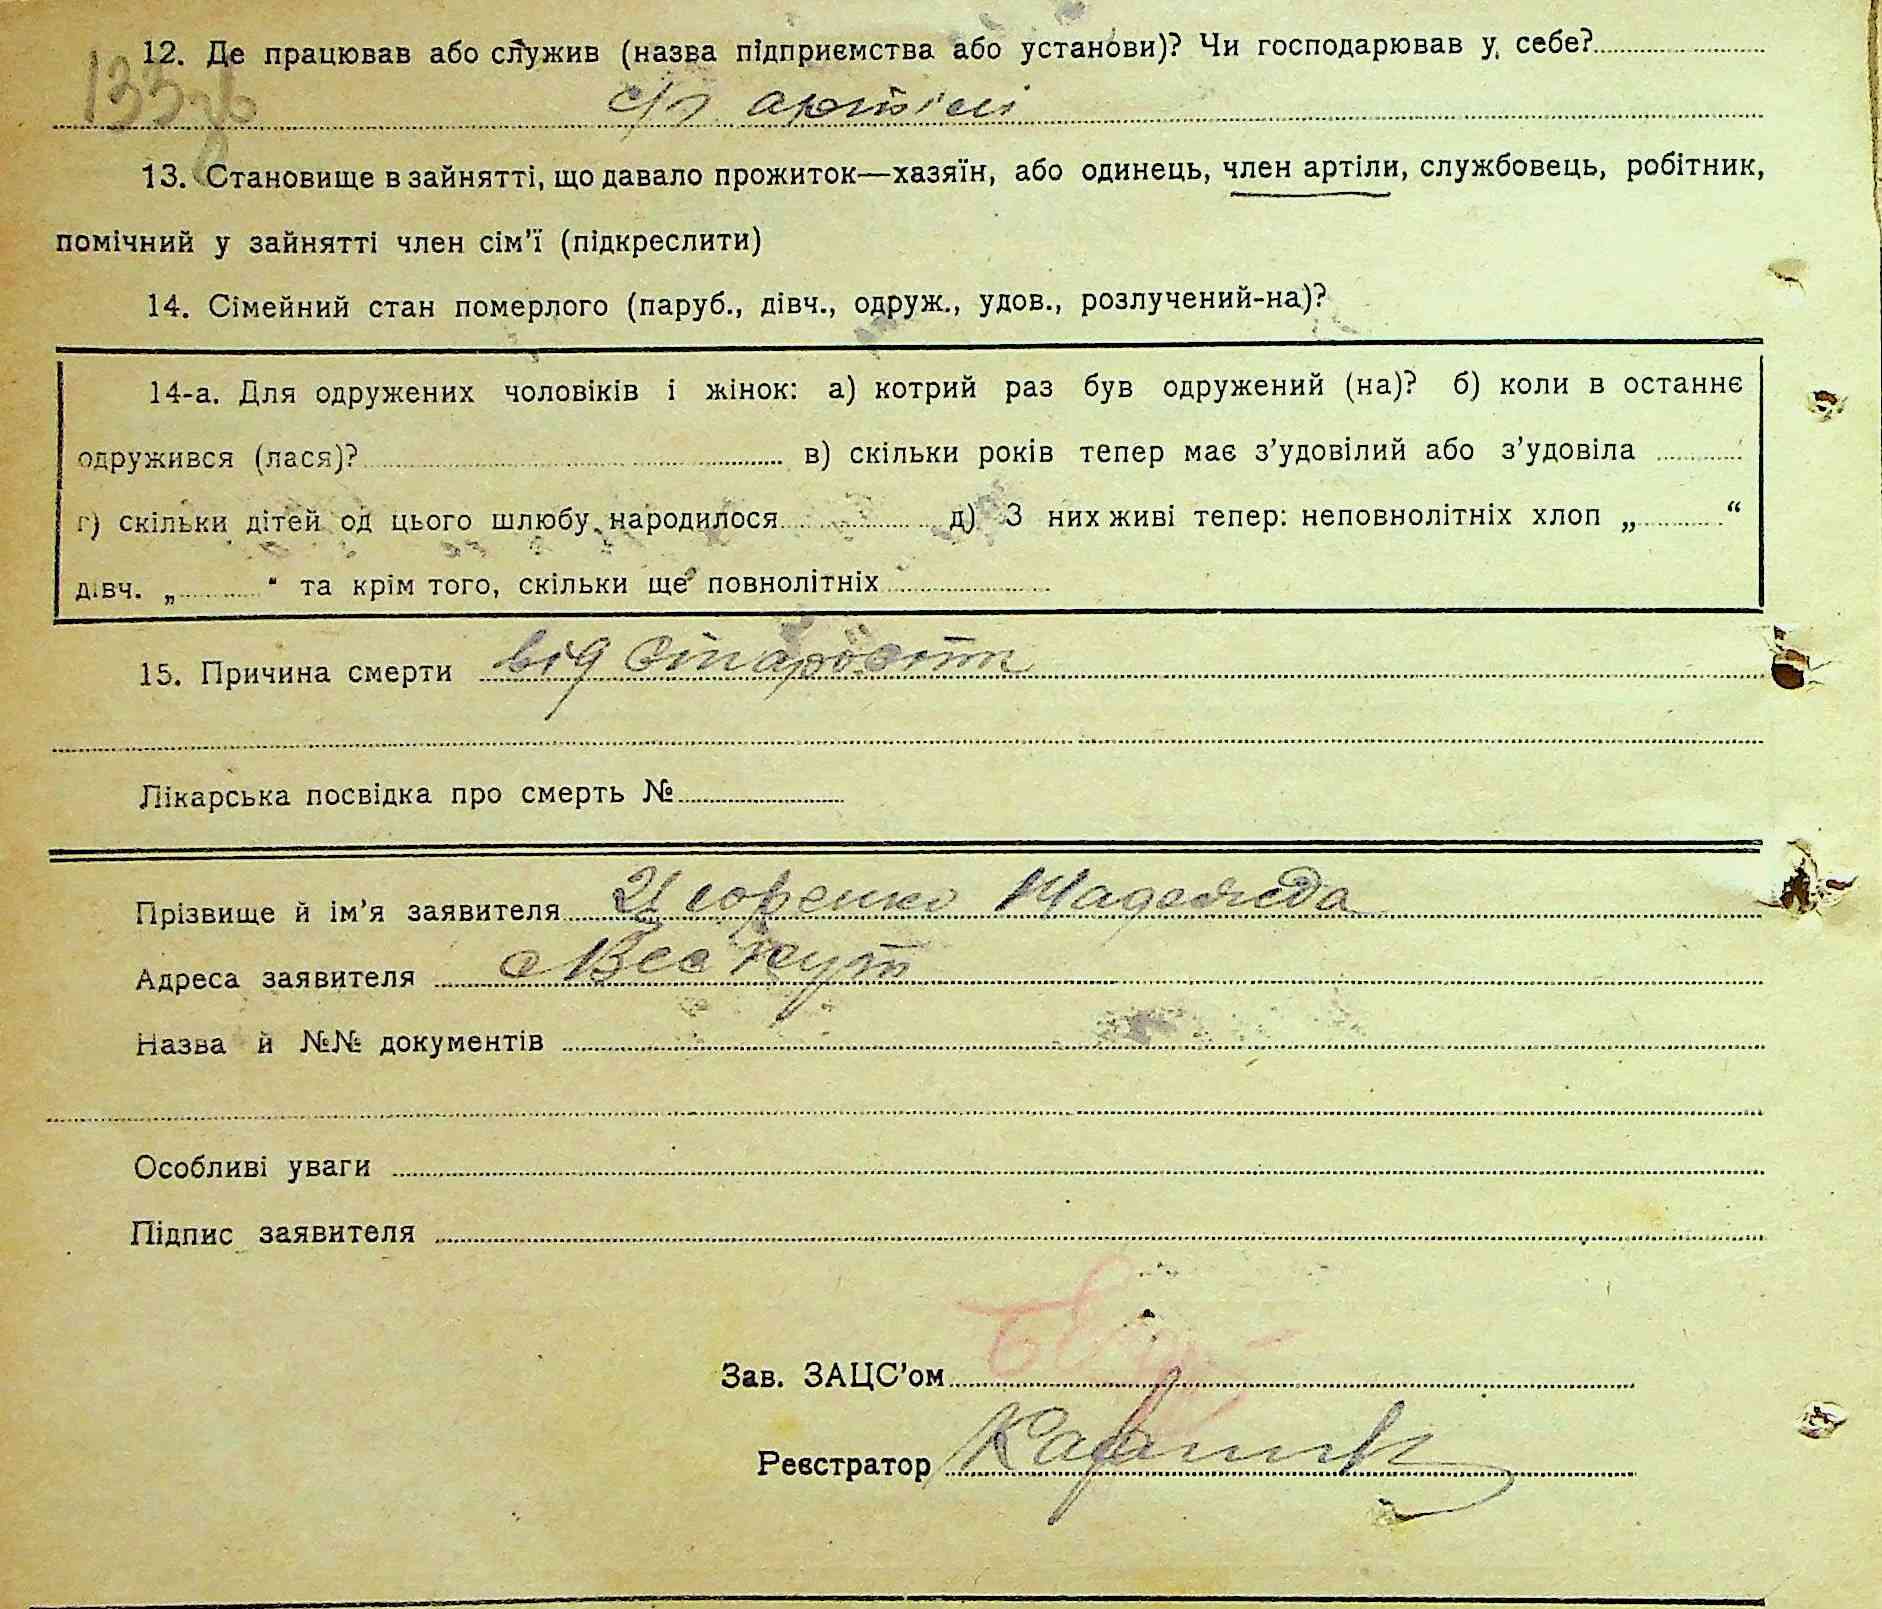 12. Де працював або служив (назва підприємства або установи)? Чи господарював у себе?
133зв
с/г артілі
13. Становище в зайнятті, що давало прожиток—хазяїн, або одинець, член артіли, службовець, робітник,
помічний у зайнятті член сім’ї (підкреслити)
14. Сімейний стан померлого (паруб., дівч., одруж., удов., розлучений-на)?
14-а. Для одружених чоловіків і жінок: а) котрий раз був одружений (на)? б) коли в останнє
одружився (лася)? в) скільки років тепер має з’удовілий або з’удовіла
г) скільки дітей од цього шлюбу народилося д) З них живі тепер: неповнолітніх хлоп „ “
дівч. „ “ та крім того, скільки ще повнолітніх
15. Причина смерти від старости
Лікарська посвідка про смерть №
Прізвище й ім’я заявителя Надежда
Адреса заявителя с Кут
Назва й №№ документів
Особливі уваги
Підпис заявителя
Зав. ЗАЦС’ом
Реєстратор